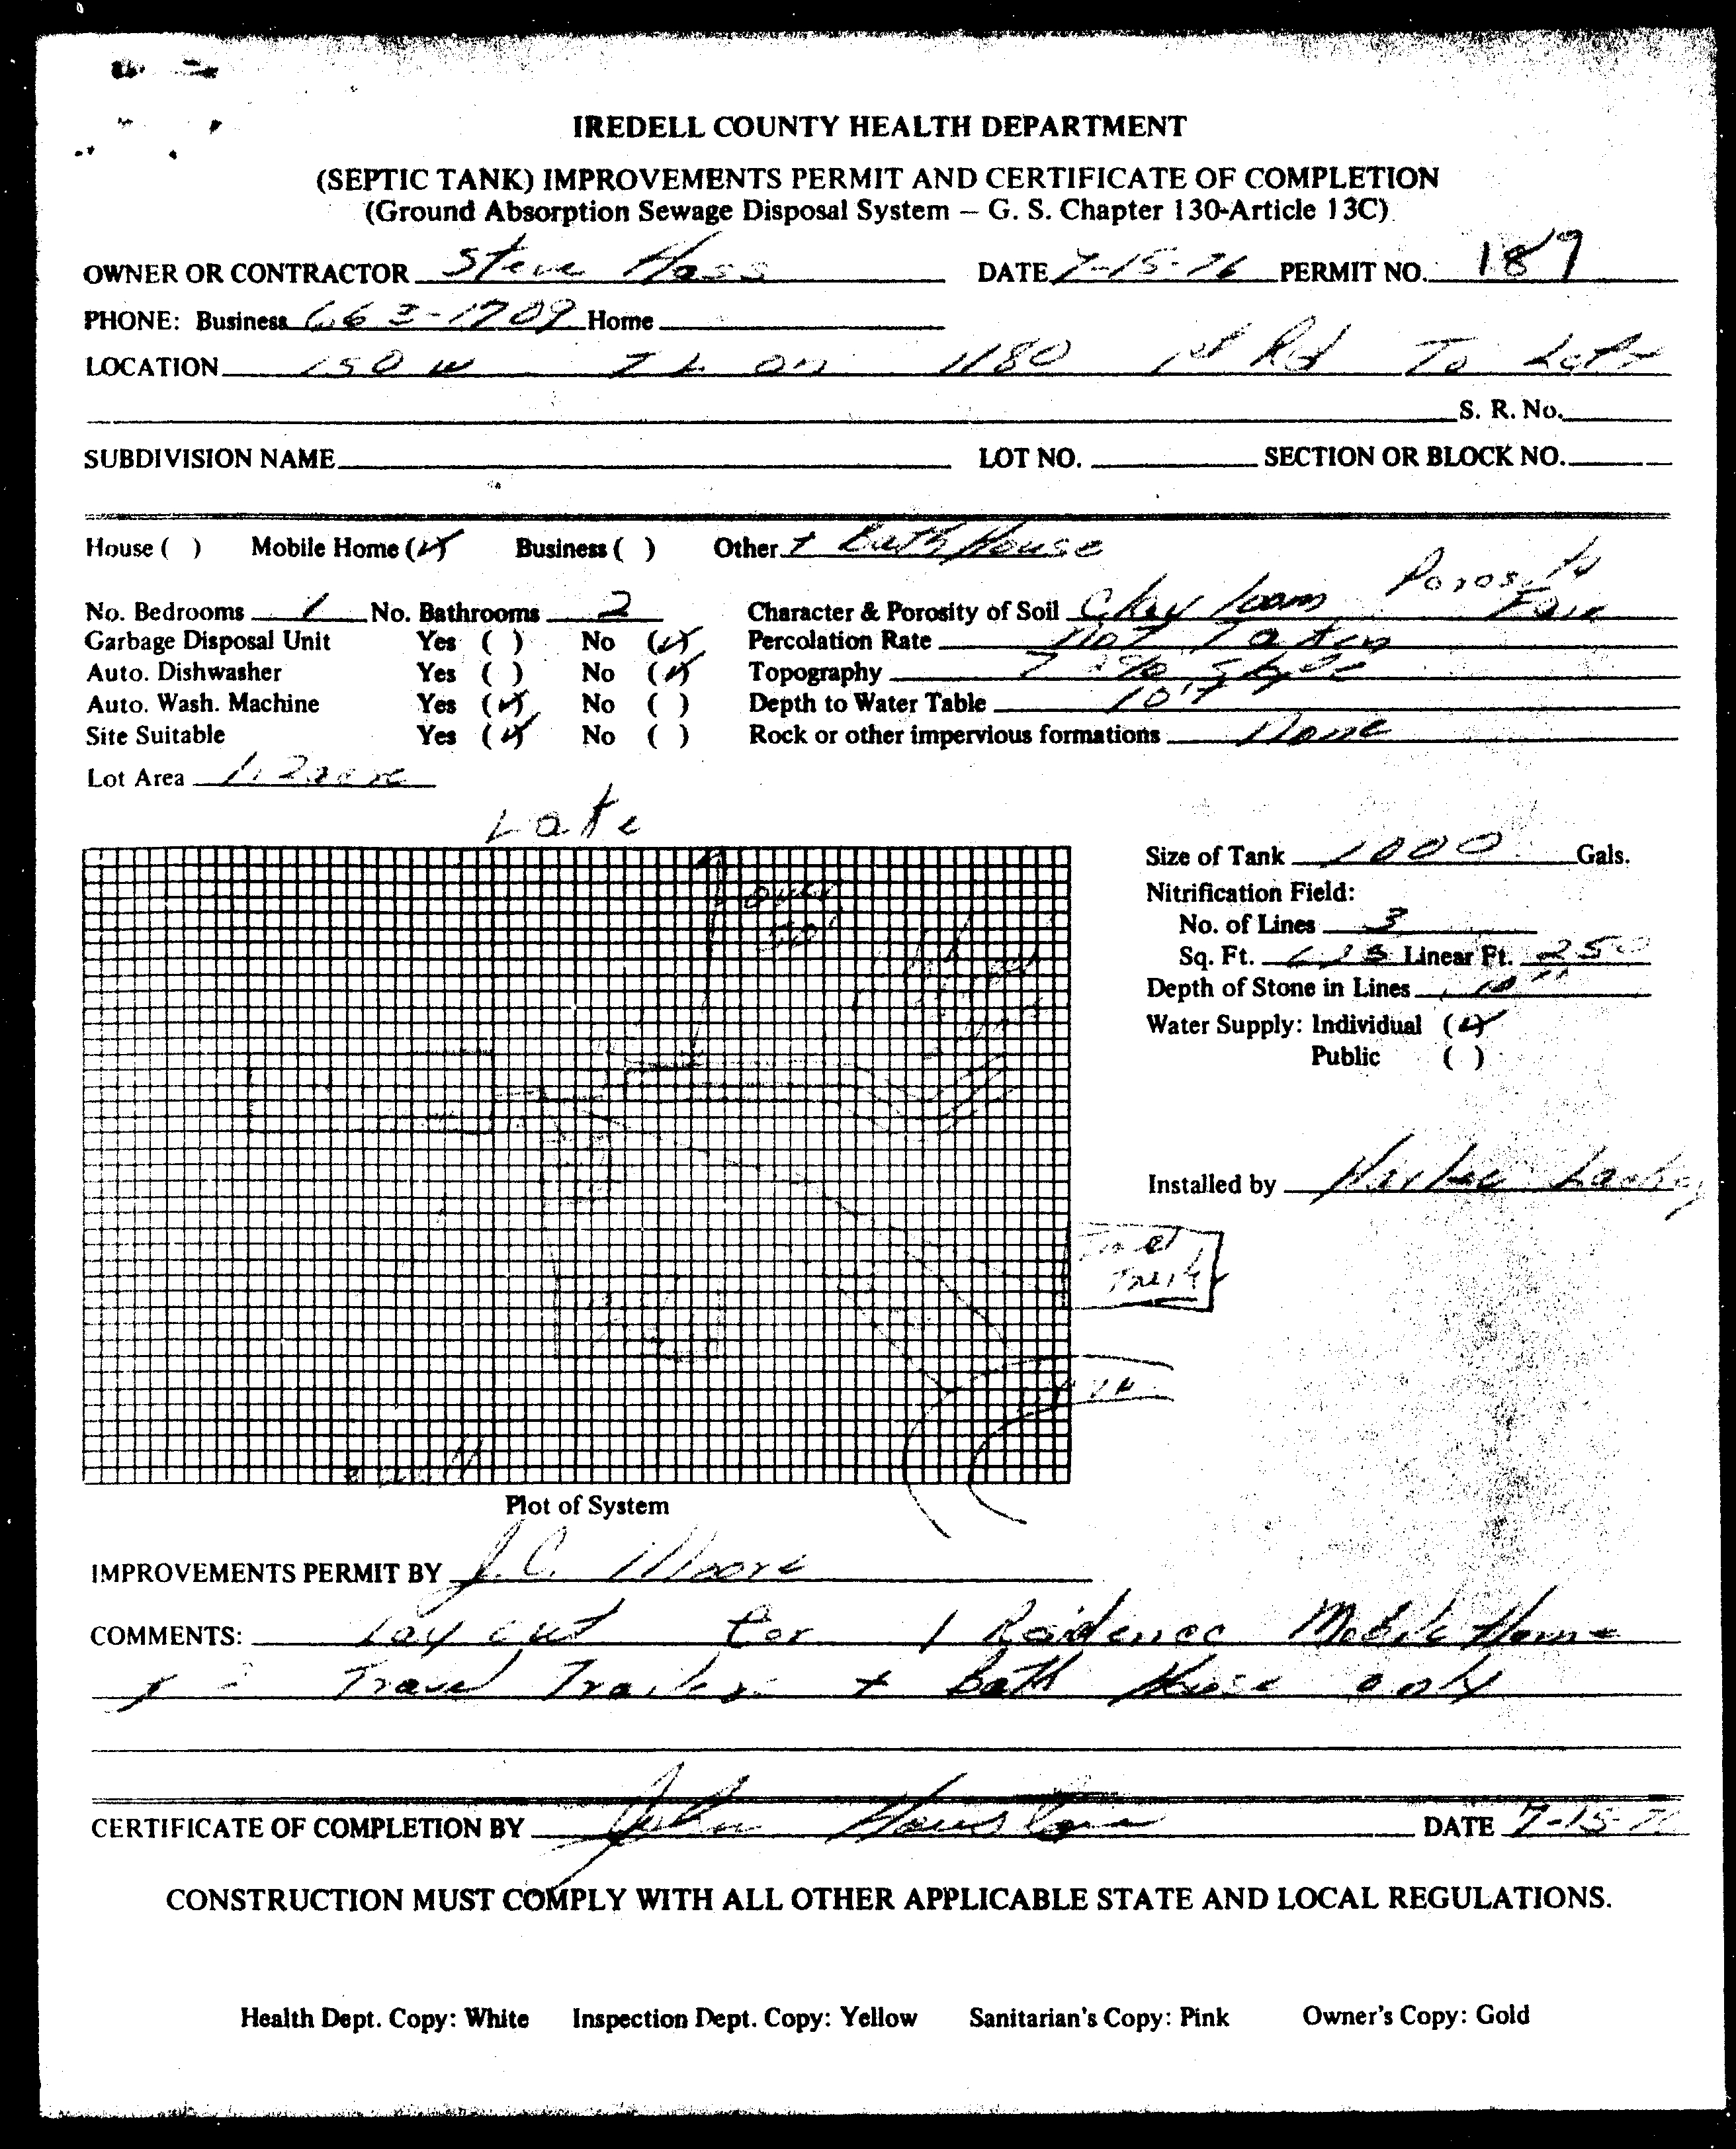 IREDELL COUNTY HEALTH DEPARTMENT
(SEPTIC TANK) IMPROVEMENTS PERMIT AND CERTIFICATE OF COMPLETION
(Ground Absorption Sewage Disposal System — G. S. Chapter 130-Article 13C)
OWNER OR CONTRACTOR Steve Hass DATE 7-15-76 PERMIT NO. 189
PHONE: Business 663-1709 Home
LOCATION 150 W TL on 1180 1st Rd To Left
S. R. No.
SUBDIVISION NAME LOT NO. SECTION OR BLOCK NO.
House ( ) Mobile Home (✓) Business ( ) Other + Bath House
No. Bedrooms 1 No. Bathrooms 2 Character & Porosity of Soil Clay loam Porosity Fair
Garbage Disposal Unit Yes ( ) No (✓) Percolation Rate not Taken
Auto. Dishwasher Yes ( ) No (✓) Topography 7% slope
Auto. Wash. Machine Yes (✓) No ( ) Depth to Water Table 10'+
Site Suitable Yes (✓) No ( ) Rock or other impervious formations None
Lot Area 1.2 acre
Lake
over
50'
Size of Tank 1000 Gals.
Nitrification Field:
No. of Lines 3
Sq. Ft. Linear Ft. 250
Depth of Stone in Lines 10"
Water Supply: Individual (✓)
Public ( )
Installed by Lackey
well
Plot of System
IMPROVEMENTS PERMIT BY J.C. Moore
COMMENTS: Lay out for 1 Residence Mobile Home
Travel Trailer + Bath House only
CERTIFICATE OF COMPLETION BY John Houston DATE 7-15-76
CONSTRUCTION MUST COMPLY WITH ALL OTHER APPLICABLE STATE AND LOCAL REGULATIONS.
Health Dept. Copy: White Inspection Dept. Copy: Yellow Sanitarian's Copy: Pink Owner's Copy: Gold